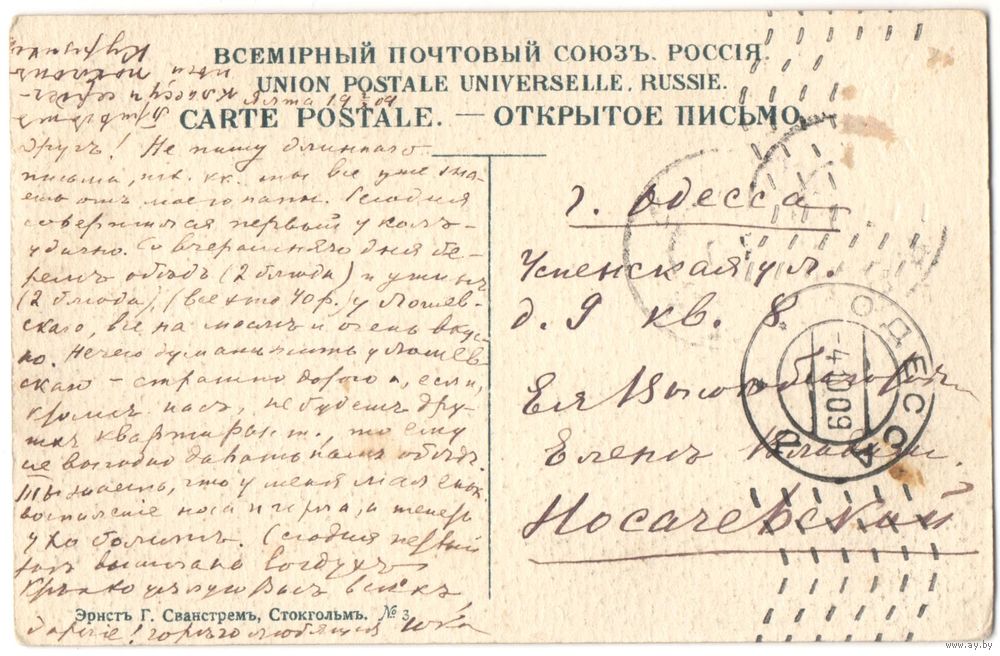 ВСЕМІРНЫЙ ПОЧТОВЫЙ СОЮЗЪ. РОССІЯ.
UNION POSTALE UNIVERSELLE. RUSSIE.
CARTE POSTALE. — ОТКРЫТОЕ ПИСЬМО.
Ялта 19 09
другъ! Не пишу длиннаго
письма, т. к. ты все уже зна-
ешь отъ моего папы. Сегодня
совершился первый уколъ
удачно. Со вчерашняго дня бе-
ремъ обѣдъ (2 блюда) и ужинъ
(2 блюда), (все это 40 р.) у Лошев-
скаго, все на маслѣ и очень вкус-
но. Нечего думать жить у Лошев-
скаго - страшно дорого и, если,
кромѣ насъ, не будетъ дру-
гихъ квартирант., то ему
не выгодно давать намъ обѣдъ.
Ты знаешь, что у меня маленьк.
воспаленіе носа и горла, а теперь
ухо болитъ. Сегодня первый
разъ воздухъ
Крѣпко цѣлую Васъ всѣхъ
дорогіе! горячо любящая
г. Одесса
Успенская ул.
д. 9 кв. 8.
Ея Высокоблагород.
Еленѣ
Носачевской
ОДЕССА
-4.10.09
Эрнстъ Г. Сванстремъ, Стокгольмъ. № 3.
www.ay.by